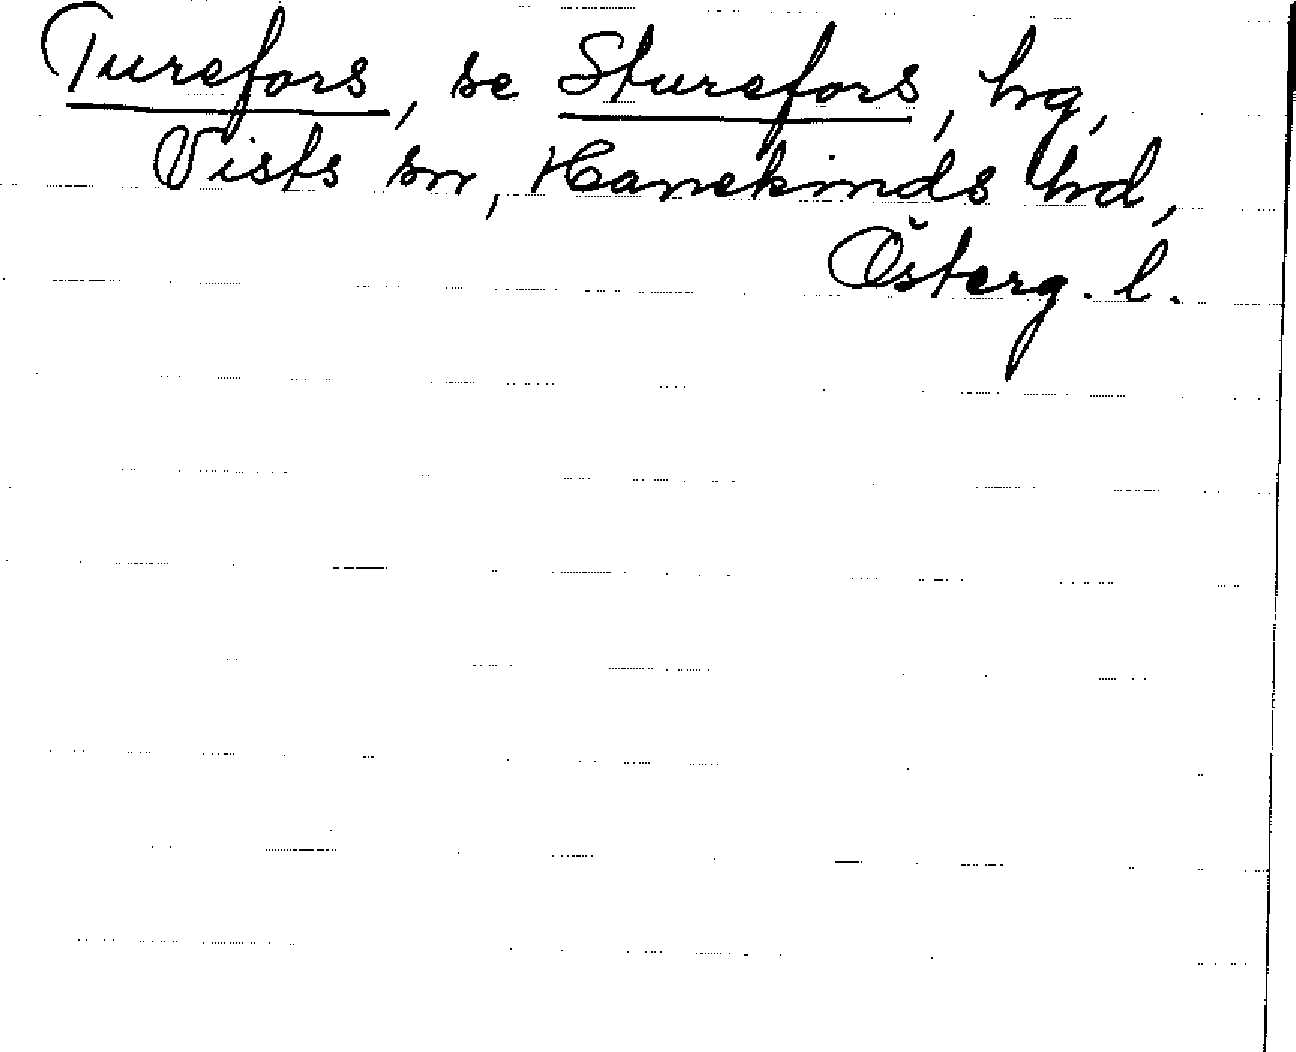 Turefors, se Sturefors, hg,
Vists sn, Hanekinds hd,
Österg. l.